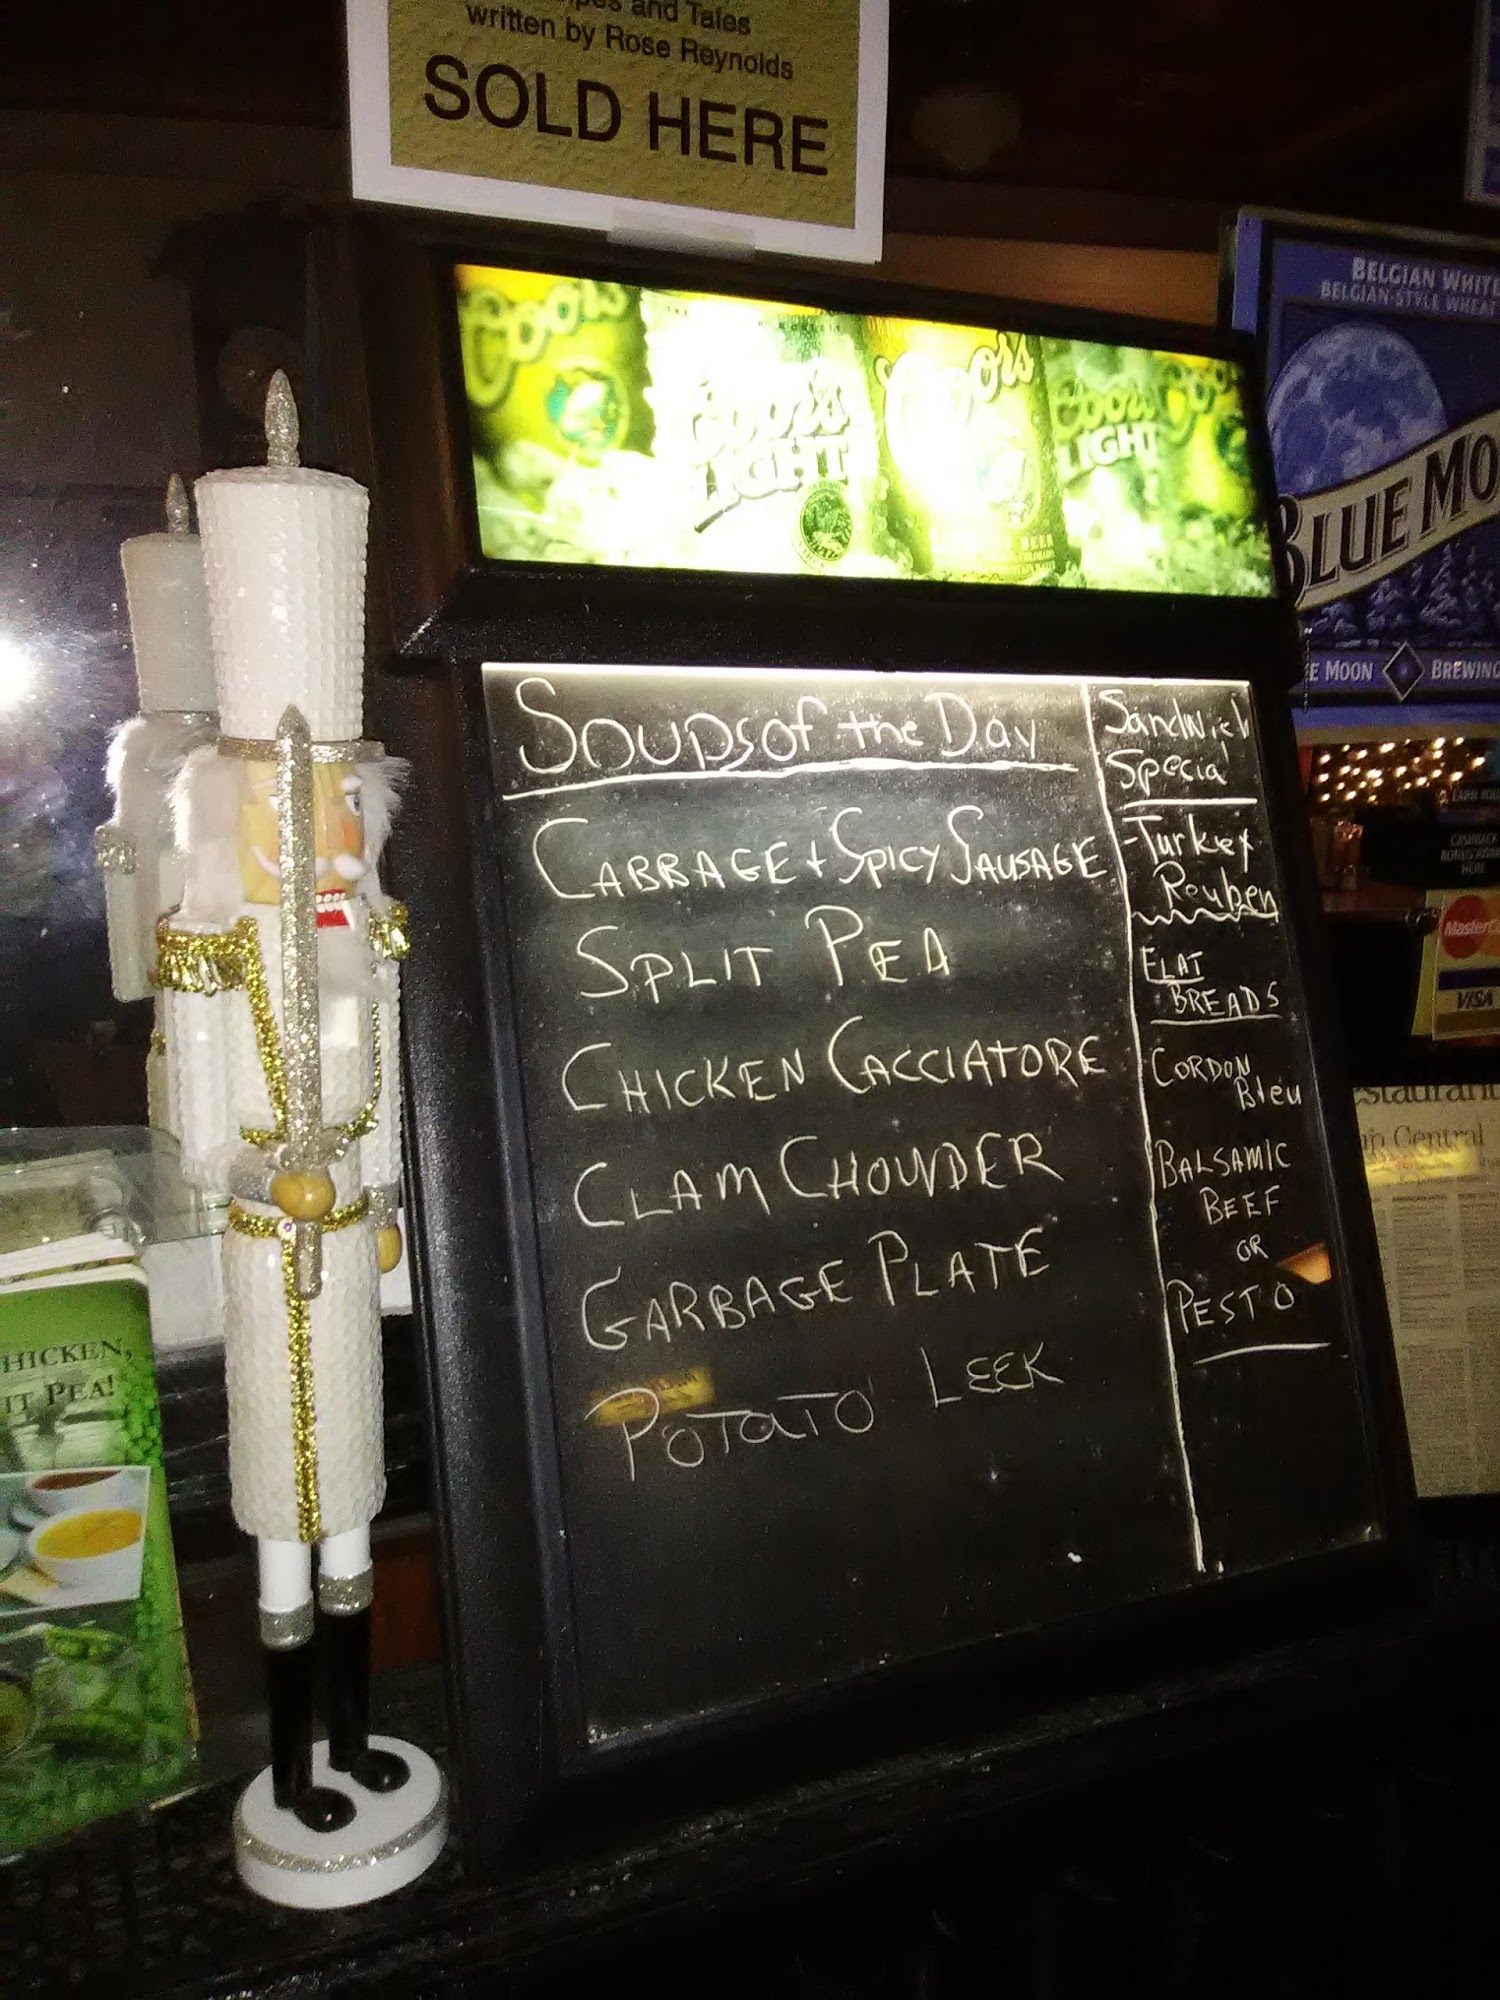 and Tales
written by Rose Reynolds
SOLD HERE
Coors
Coors LIGHT
Coors
Coors LIGHT
BELGIAN WHITE
BLUE MO
E MOON BREWING
Soups of the Day
CABBAGE + SPICY SAUSAGE
SPLIT PEA
CHICKEN CACCIATORE
CLAM CHOWDER
GARBAGE PLATE
POTATO LEEK
Sandwich
Special
Turkey
Reuben
FLAT
BREADS
CORDON
Bleu
BALSAMIC
BEEF
OR
PESTO
CASHBACK
BONUS
HERE
MasterCa
VISA
estaurant
Central
HICKEN,
IT PEA!